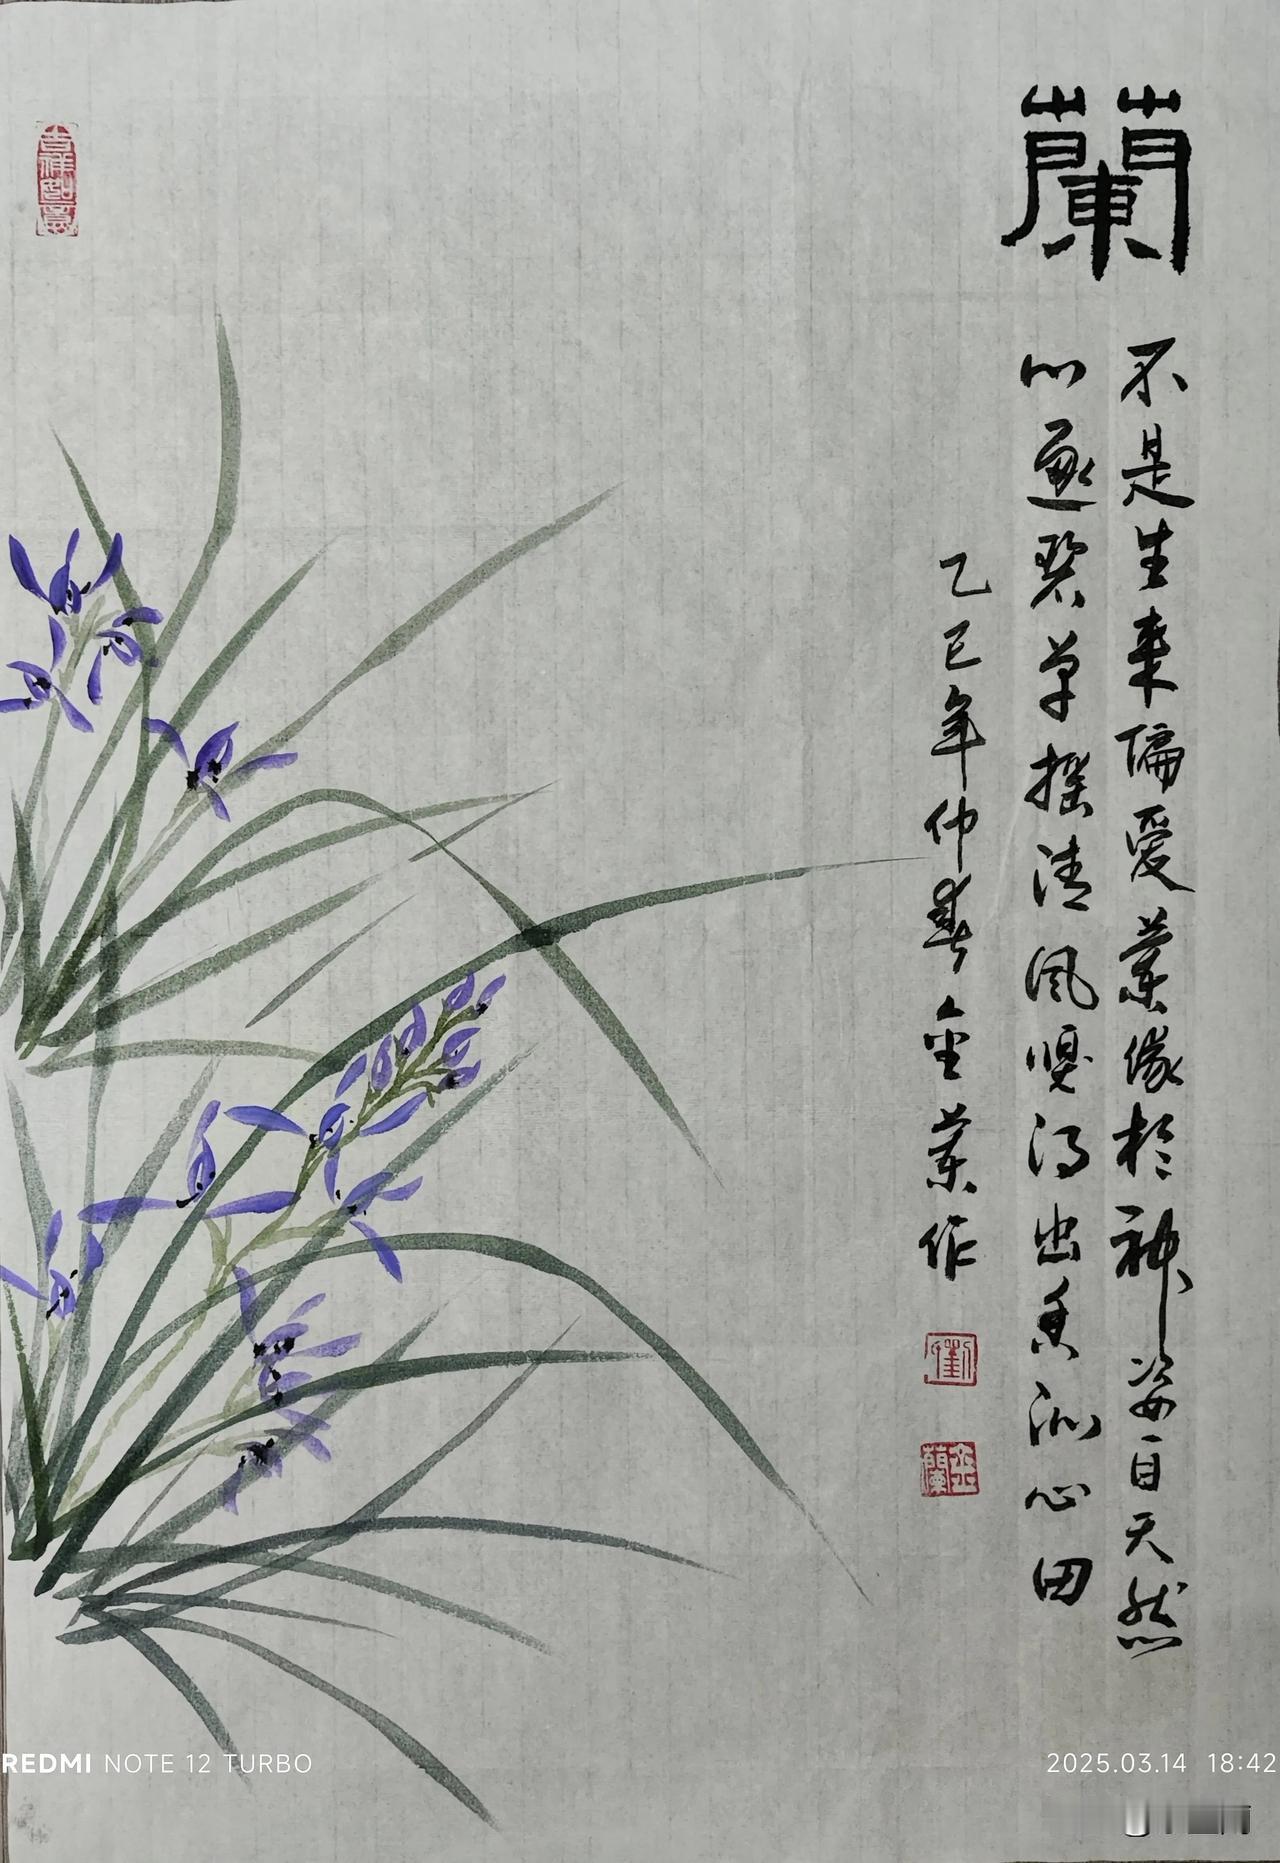 蘭
不是生来偏愛蘭缘於神姿自天然
心逐碧草摇清風嗅得幽香沁心田
乙巳年仲春金蘭作
劉
金蘭
吉祥如意
REDMI NOTE 12 TURBO
2025.03.14 18:42